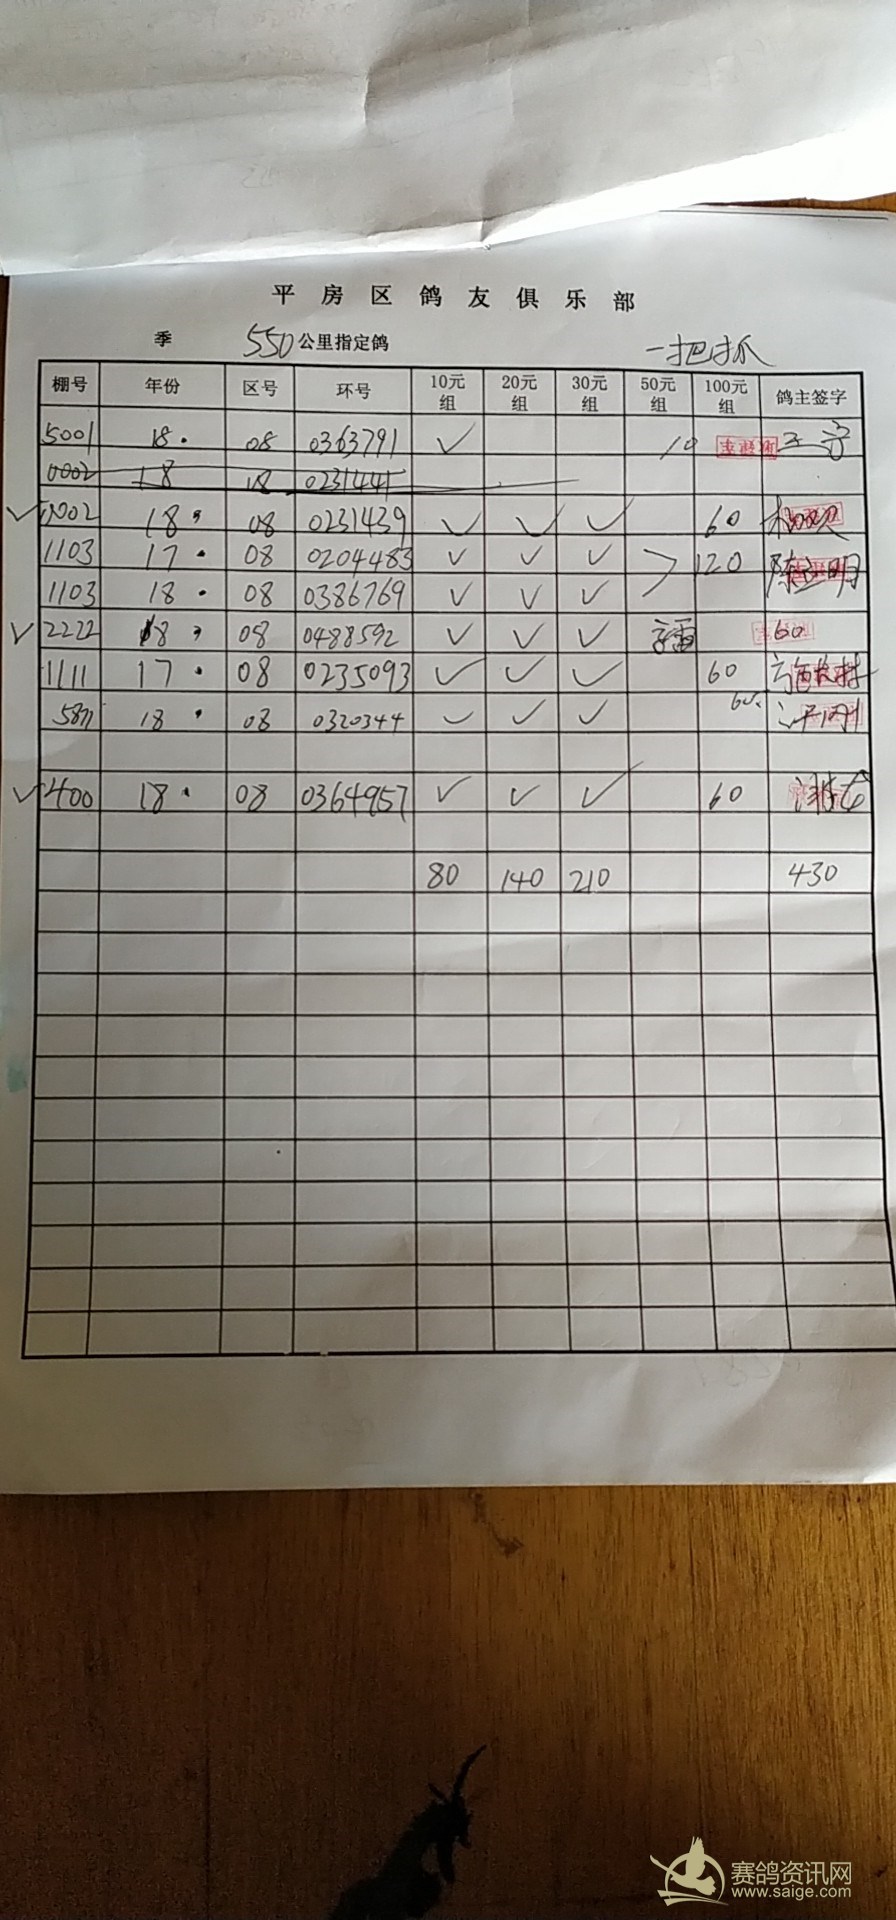 平房区鸽友俱乐部
季 550公里指定鸽 一把抓
棚号 年份 区号 环号 10元组 20元组 30元组 50元组 100元组 鸽主签字
5001 18. 08 0363791 ✓ 10 王
0002 18 18 0231441
✓ 0002 18. 08 0231439 ✓ ✓ ✓ 60
1103 17. 08 0204483 ✓ ✓ ✓ 120 陈明
1103 18. 08 0386769 ✓ ✓ ✓
✓ 2222 18. 08 0488592 ✓ ✓ ✓ 60
1111 17. 08 0235093 ✓ ✓ ✓ 60
18. 08 0320344 ✓ ✓ ✓ 60.
✓ 400 18. 08 0364957 ✓ ✓ ✓ 60
80 140 210 430
赛鸽资讯网
www.saige.com